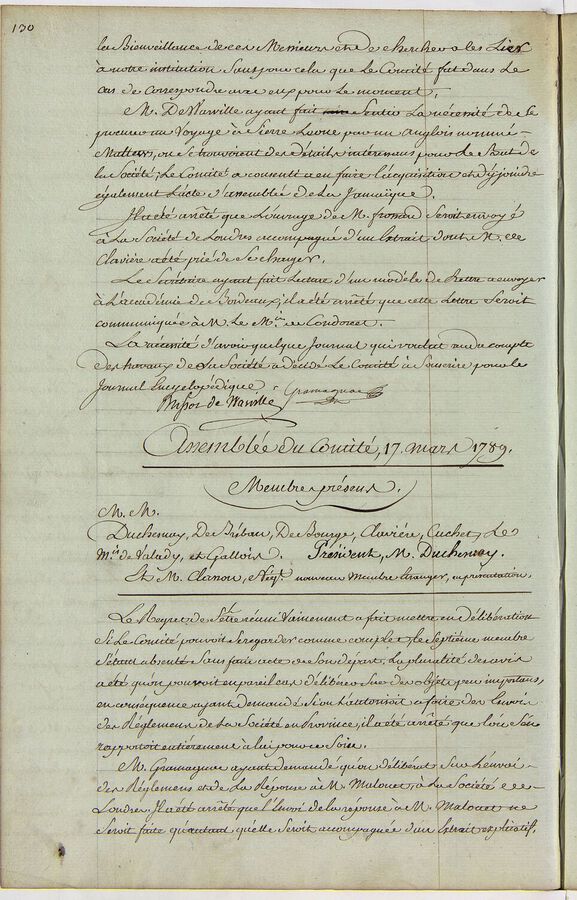 130
la Bienveillance de ces Messieurs et de chercher a les Lier
à notre institution sans pour cela que le Comité fut dans le
cas de correspondre avec eux pour le moment.
M. De Warville ayant fait sentir la nécessité de se
procurer un Voyage à Sierre Leone par un Anglois nommé
où se trouvoient des détails intéressans pour le But de
la Société, Le Comité a consenti a en faire l'acquisition et d'y joindre
également l'acte d'assemblée de La Jamaïque.
Il a été arrêté que L'ouvrage de M. frossard seroit envoyé
à La Société de Londres accompagné d'un Extrait dont M.
Claviere a été prié de se charger.
Le Secrétaire ayant fait Lecture d'un modèle de Lettre a envoyer
à L'académie de Bordeaux, il a été arrêté que cette Lettre seroit
communiquée à M. Le M.is de Condorcet.
La nécessité d'avoir quelque Journal qui voulut rendre compte
des travaux de la Société a décidé Le Comité à Souscrire pour le
Journal Encyclopédique.
Brissot de Warville Gramagnac
Assemblée du Comité, 17. mars 1789.
Membres présens.
M. M.
Duchesnay, De Bourge, Clavière, Cuchet, Le
M.is de Valady, et Gallois. Président, M. Duchesnay.
Et M. nouveau Membre Etranger, en présentation.
Le Regret de s'être réuni Vainement a fait mettre en délibération
si Le Comité pouvoit se regarder comme complet, le Septième membre
s'étant absenté sans faire acte de son départ, La pluralité des avis
a été qu'on pouvoit en pareil cas délibérer sur des objets peu importans,
en conséquence ayant demandé si on L'autorisoit a faire des Envois
des Réglemens de La Société en Province, il a été arrêté que l'on s'en
rapportoit entièrement à lui pour ce Soin.
M. Gramagnac ayant demandé qu'on délibérât sur L'envoi
des Réglemens et de La Réponse à M. Malouet, à La Société de
Londres. Il a été arrêté que l'Envoi de la réponse à M. Malouet ne
seroit faite qu'autant qu'elle seroit accompagnée d'un Extrait explicatif.